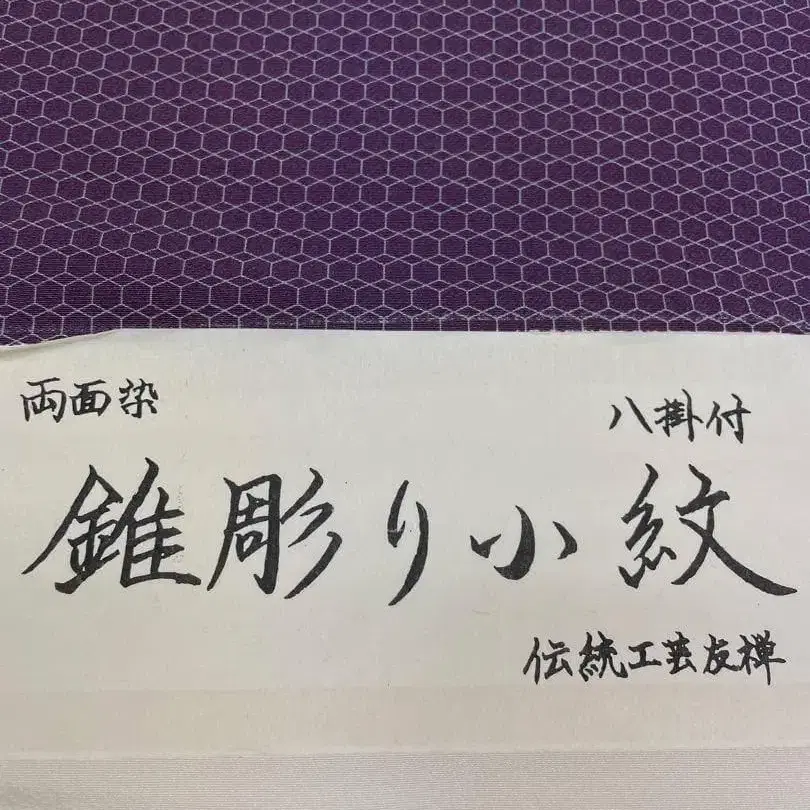 両面染
八掛付
錐彫り小紋
伝統工芸友禅